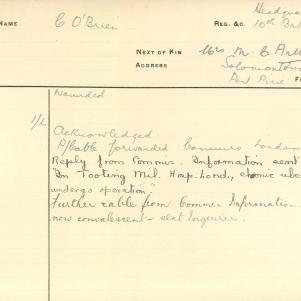 NAME C O'Brien REG. &C. Headqua
10th Bat
NEXT OF KIN Mrs M. C
ADDRESS Solomontown
Port Pirie F
Wounded
1/2
Acknowledged
P/Cable forwarded Commrs London
Reply from Commrs. Information sent
"In Tooting Mil. Hosp. Lond., chronic ulce
undergo operation."
Further cable from Commrs Information
now convalescent - sent Inquirer.